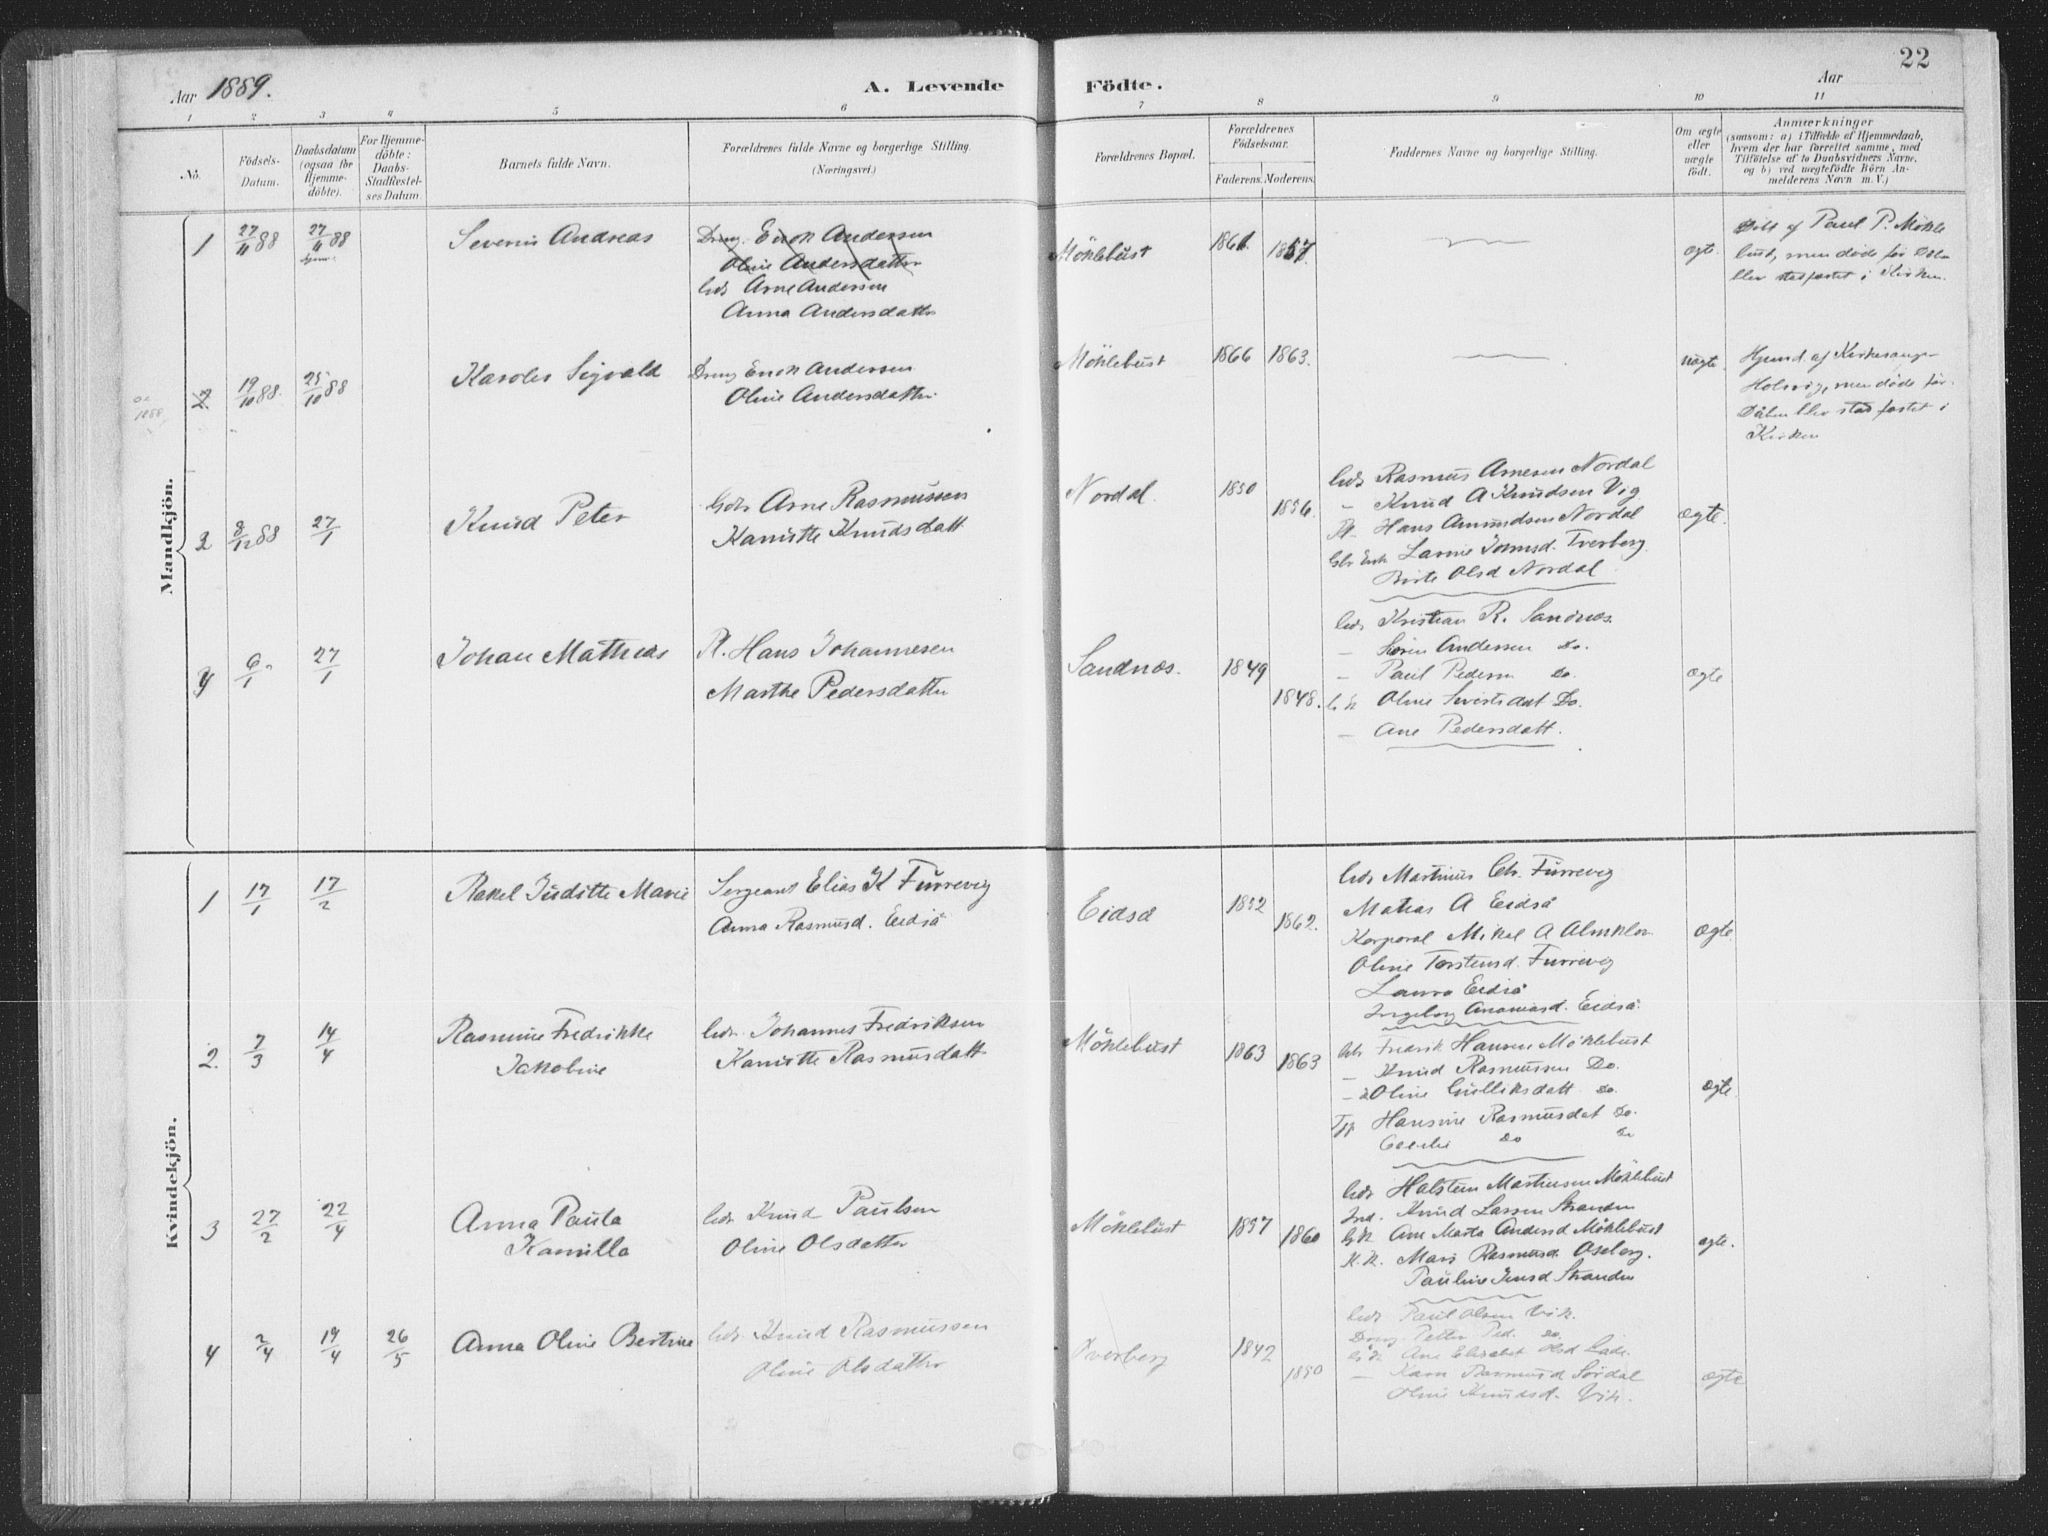 22
Aar 1889.
A. Levende Födte.
Aar
1 2 3 4 5 6 7 8 9 10 11
No.
Födsels-Datum.
Daabsdatum (ogsaa for Hjemme-döbte).
For Hjemme-döbte: Daabs-Stadfæstel-ses Datum
Barnets fulde Navn.
Forældrenes fulde Navne og borgerlige Stilling.
(Næringsvei.)
Forældrenes Bopæl.
Forældrenes Födselsaar.
Faderens. Moderens.
Faddernes Navne og borgerlige Stilling.
Om ægte eller uægte födt.
Anmærkninger
(saasom: a) i Tilfælde af Hjemmedaab,
hvem der har forrettet samme, med
Tilföielse af to Daabsvidners Navne,
og b) ved uægtefödte Börn An-
melderens Navn m. V.)
Mandkjön.
1 27/11 88 27/11 88 Severin Andreas
Dreng. Enok Andersen
Oline Andersdatter
Anne Andersen
Anna Andersdatter
Möklebust 1861 1857. ægte.
Döbt af Paul P. Mökle
bust, men döde för Daa
blev stadfæstet i Kirken.
2. 19/10 88. 25/10 88 Karoles Sigvald
Dreng Enok Andersen
Oline Andersdatter
Möklebust 1866 1863. uægte.
Hjemd. af Kirkesanger
Holsvig, men döde för
Dåben blev stadfæstet i
Kirken
1888
3 8/12 88 27/1 Knud Peter
Gdr Arne Rasmussen
Kanutte Knudsdatt
Nordal. 1850 1856. ægte.
Gdr Rasmus Arnesen Nordal
- Knud A Knudsen Vig
Pl. Hans Amundsen Nordal
Larine Jonnsd. Tverberg
Birte Olsd Nordal
4 6/1 27/1 Johan Mathias
Pl. Hans Johannesen
Marthe Pedersdatter
Sandnæs. 1849 1848. ægte
Gdr Kristian R. Sandnæs.
- Sören Andersen Do.
- Paul Pedersen Do.
G K Oline Sivertsdat Do.
- Ane Pedersdatt.
Kvindekjön.
1 17/1 17/2 Rakel Juditte Marie
Sergeant Elias K Furrevig
Anna Rasmusd. Eidså
Eidså 1852 1862. ægte
Gdr Martinus Chr. Furrevig
Matias A Eidså
Korporal Mikal A Almklov
Oline Torstensd. Furrevig
Laura Eidså
Ingeborg Ananiasd. Eidså
2. 7/3 14/4 Rasmine Fredrikke
Jakobine
Gdr. Johannes Fredriksen
Kanutte Rasmusdatt
Möklebust 1863 1863 ægte.
Gdr Fredrik Hansen Möklebust
- Knud Rasmussen Do.
- Oline Gulliksdatt Do.
Hansine Rasmusdat Do.
Cecilie Do Do
3 27/2 22/4 Anna Paula
Kamilla
Gdr Knud Paulsen
Oline Olsdatter
Möklebust 1857 1860 ægte.
Gdr Halsten Martinusen Möklebust
Ind. Knud Larsen Stranden
G.K. Ane Marta Andersd Möklebust
K.K. Mari Rasmusd. Aseberg.
Pauline Jensd Stranden
4 2/4 19/4 26/5 Anna Oline Bertine
Gdr Knud Rasmussen
Oline Olsdatter
Tverberg 1842 1850 ægte
Gdr Paul Olsen Vik.
Dreng Petter Ped. Do.
G K Ane Elisabet Olsd Lade.
- Karn Rasmusd Sördal
Oline Knudsd. Vik.